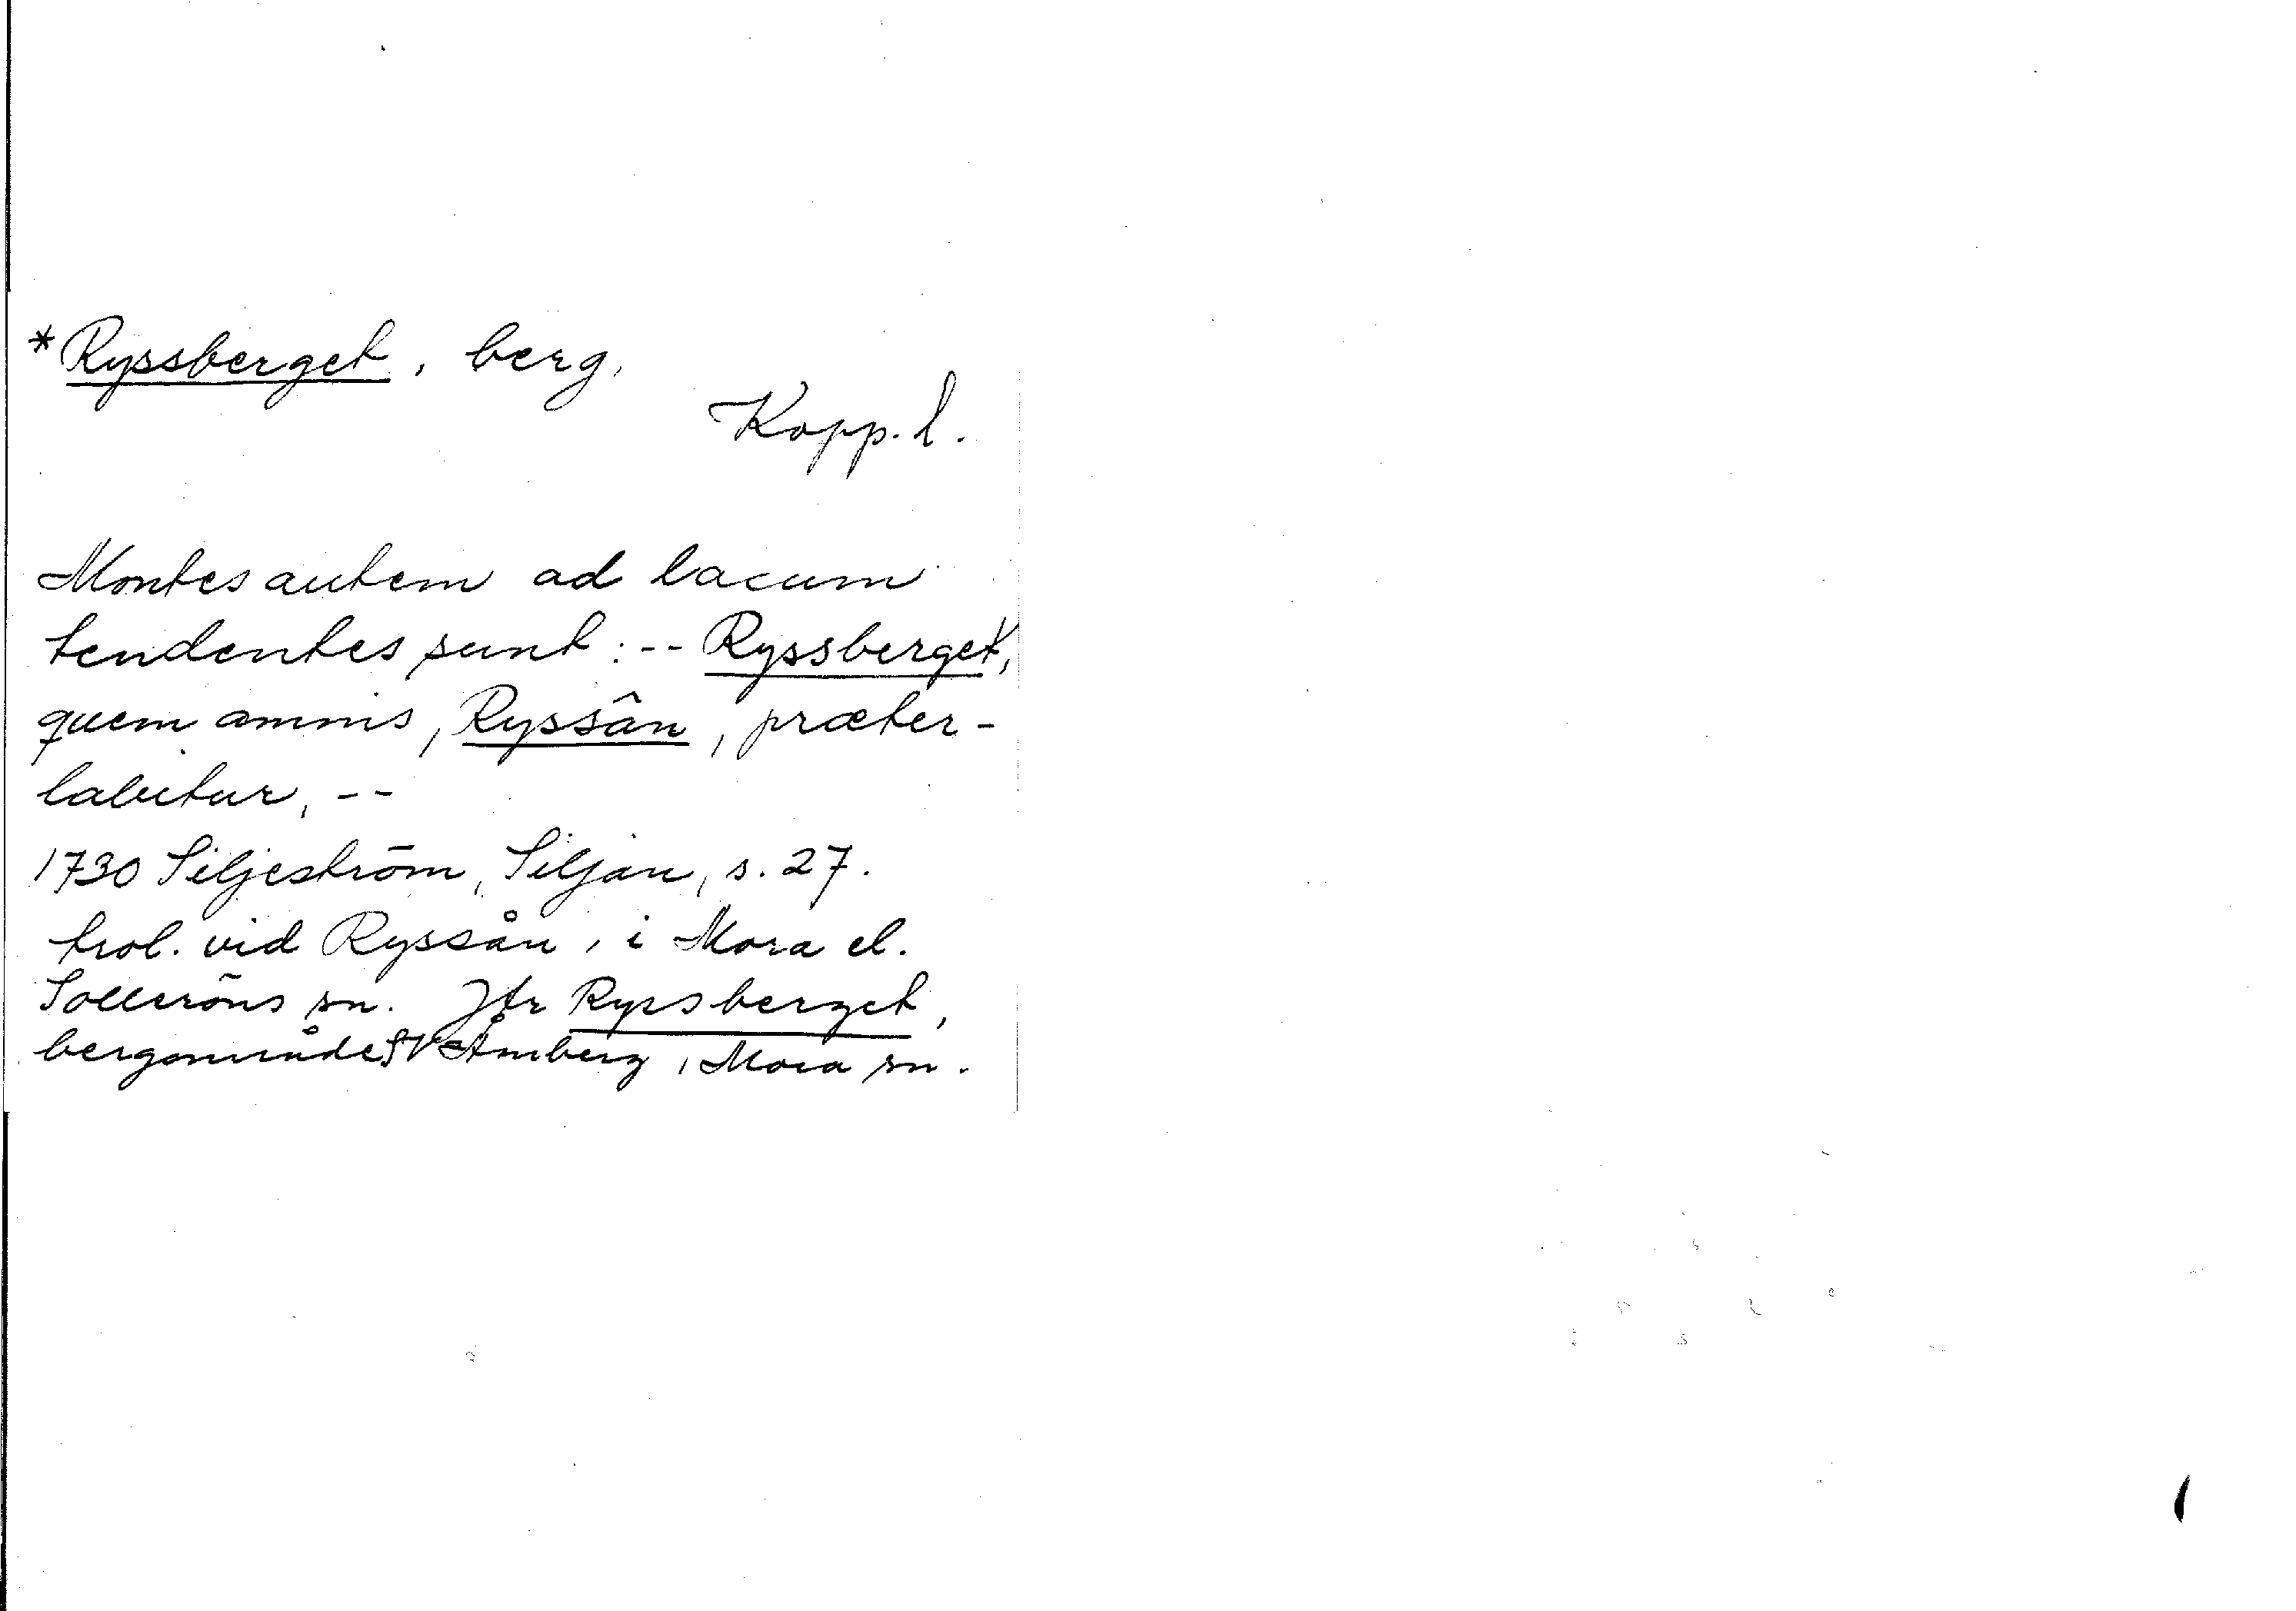 *Ryssberget, berg,
Kopp. l.
Montes autem ad lacum
tendentes sunt: -- Ryssberget,
quem amnis, Ryssân, præter-
labitur, --
1730 Siljeström, Siljan, s. 27.
trol. vid Ryssån, i Mora el.
Solleröns sn. Jfr Ryssberget,
bergområde SV Åmberg, Mora sn.